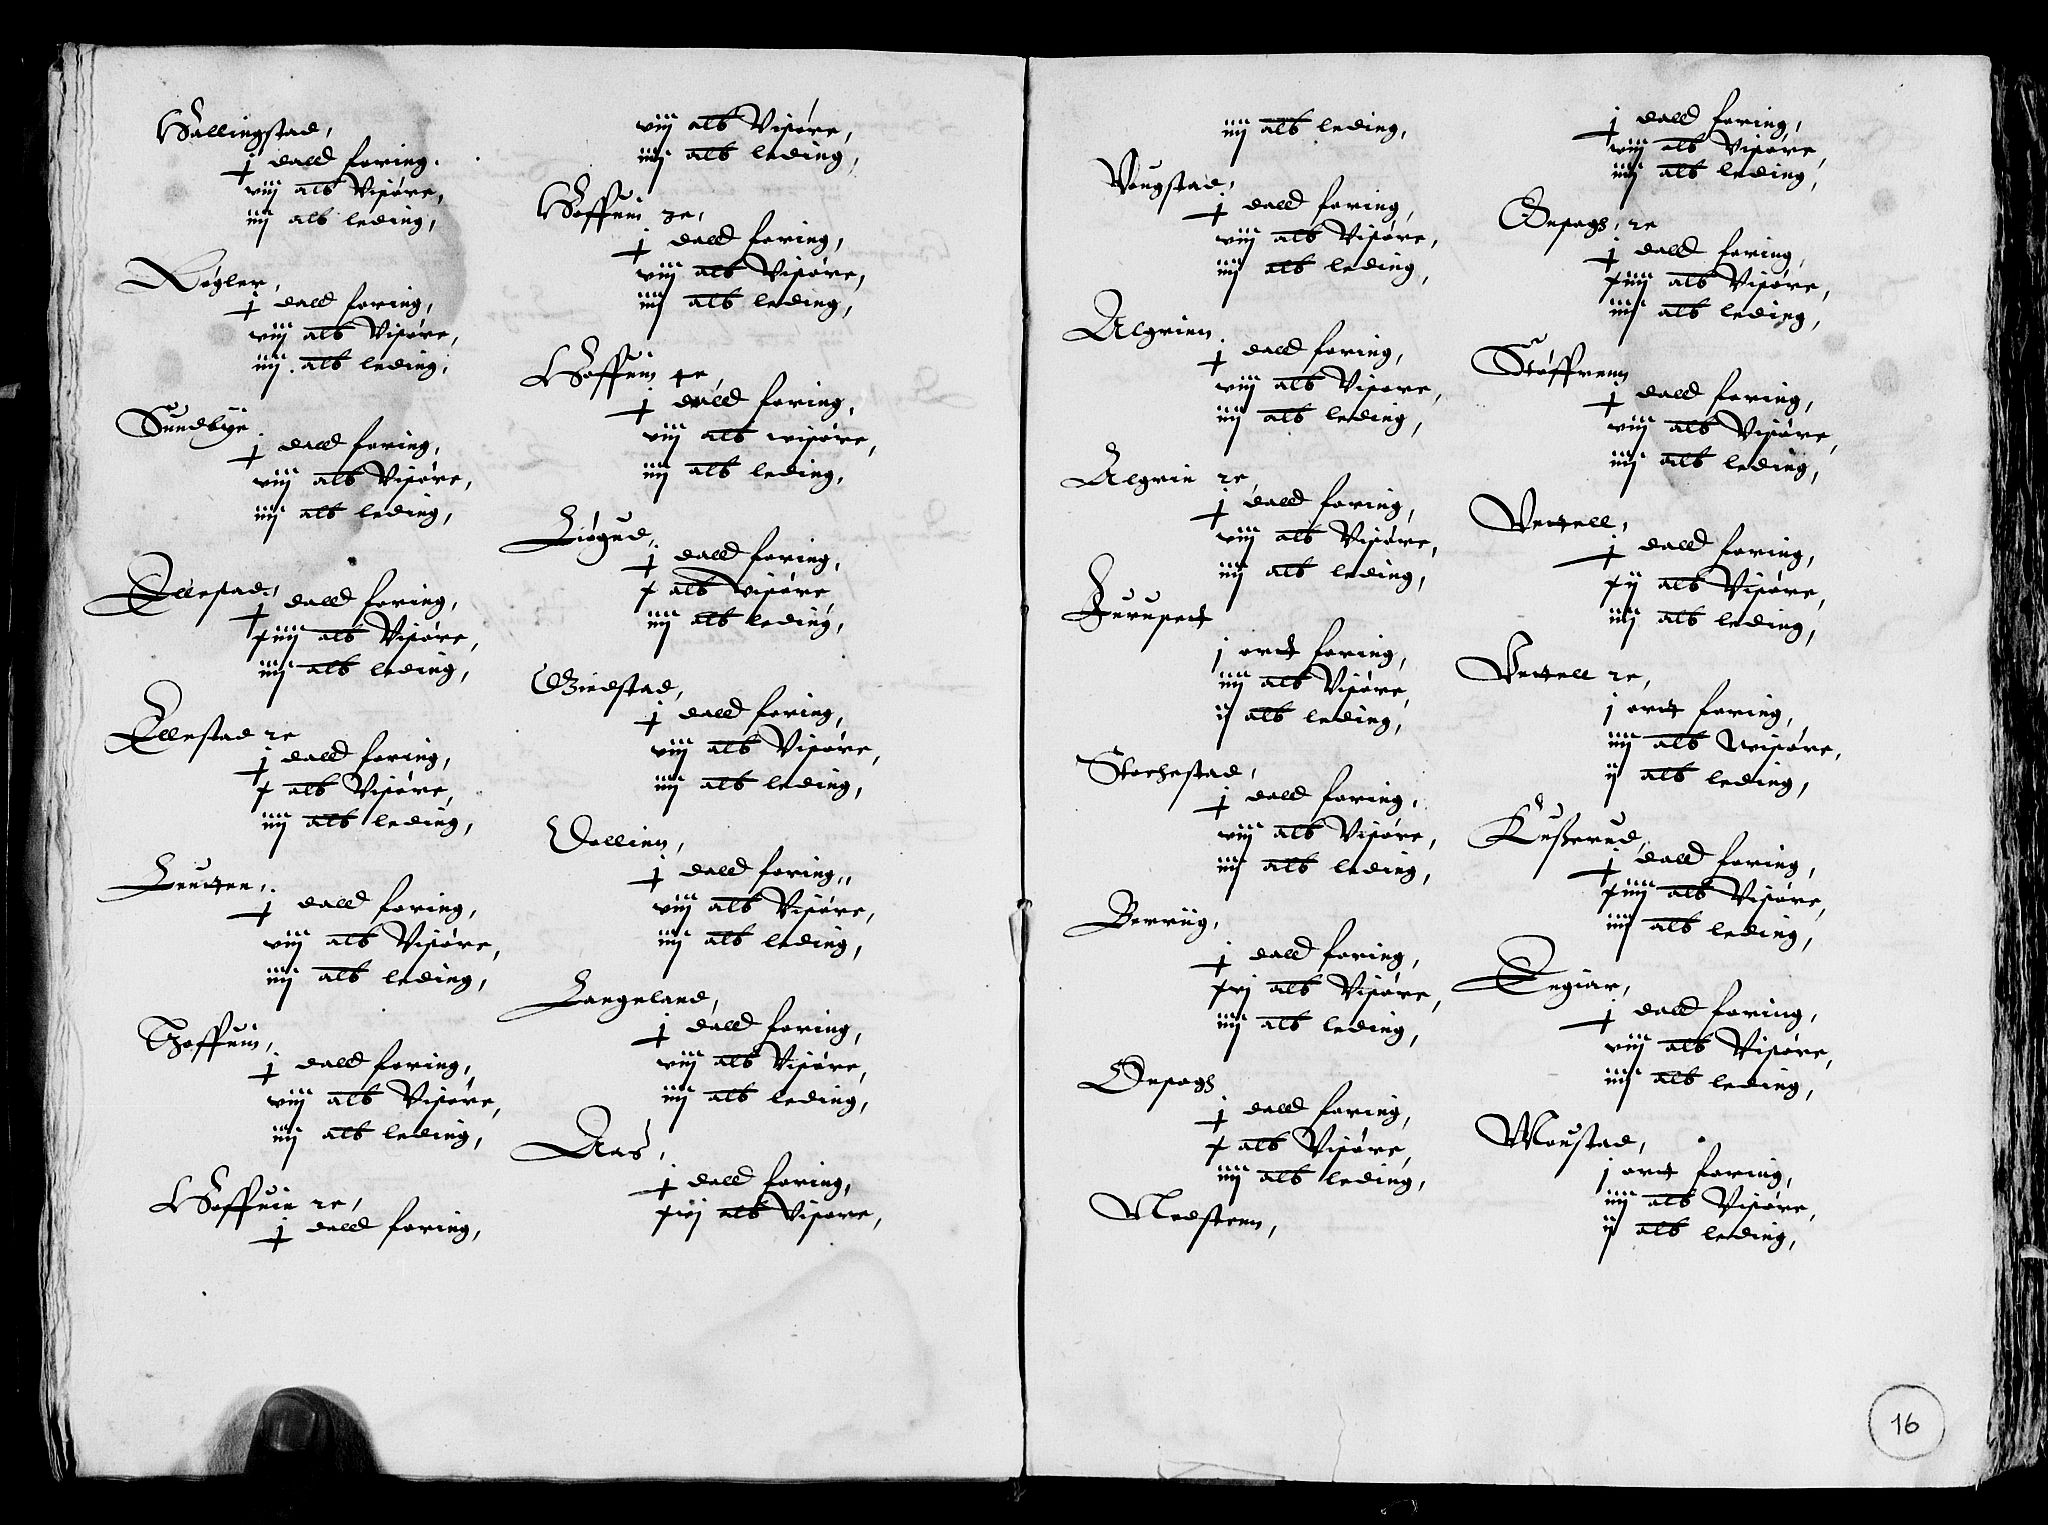 Hallingstad,
j dalld foring.
viij alb Visøre,
iiij alb leding,
Nøgler,
j dalld foring,
viij alb Visøre,
iiij alb leding,
Sundbye
j dalld foring,
viij alb Visøre,
iiij alb leding,
Ellestad,
j dalld foring,
xiiij alb Visøre,
iiij alb leding,
Ellestad 2e
j dalld foring,
x alb Visøre,
iiij alb leding,
Leutten,
j dalld foring,
viij alb Visøre,
iiij alb leding,
Thoffuin,
j dalld foring,
viij alb Visøre,
iiij alb leding,
Hoffuin 2e,
j dalld foring,
viij alb Visøre,
iiij alb leding,
Hoffuin 3e,
j dalld foring,
viij alb Visøre,
iiij alb leding,
Hoffuin 4e,
j dalld foring,
viij alb wisøre,
iiij alb leding,
Liøgud,
j dalld foring,
x alb wisøre
iiij alb leding,
Giedstad,
j dalld foring,
viij alb Visøre,
iiij alb leding,
Dollien,
j dalld foring,
viij alb Visøre,
iiij alb leding,
Langeland,
j dalld foring,
viij alb Visøre,
iiij alb leding,
Aas,
j dalld foring,
xvj alb Visøre,
iiij alb leding,
Vougstad,
j dalld foring,
viij alb Visøre,
iiij alb leding,
Algrien
j dalld foring,
viij alb Visøre,
iiij alb leding,
Algrin 2e,
j dalld foring,
viij alb Visøre,
iiij alb leding,
Furuset
j ortt foring,
iiij alb Visøre,
ij alb leding,
Stochestad,
j dalld foring,
viij alb Visøre,
iiij alb leding,
Berriig,
j dalld foring,
xvj alb Visøre,
iiij alb leding,
Onsogs
j dalld foring,
x alb Visøre,
iiij alb leding,
Medsteen,
j dalld foring,
viij alb Visøre,
iiij alb leding,
Onsogs, 2e
j dalld foring,
xiiij alb Visøre,
iiij alb leding,
Støffrenn
j dalld foring,
viij alb Visøre,
iiij alb leding,
Vettell,
j dalld foring,
xij alb Visøre,
iiij alb leding,
Vettell 2e,
j ortt foring,
iiij alb wisøre,
ij alb leding,
Kußerud,
j dalld foring,
xiiij alb Visøre,
iiij alb leding,
Engiar,
j dalld foring,
viij alb Visøre,
iiij alb leding,
Moustad,
j ortt foring,
iiij alb Visøre,
ij alb leding,
16